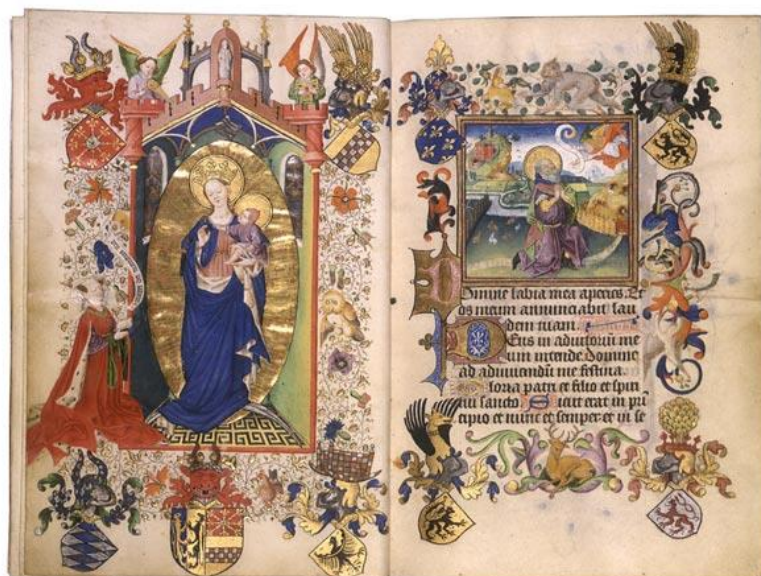 Domine labia mea aperies. Et
os meum annunciabit lau
dem tuam.
Deus in adiutoriū me
um intende Domine
ad adiuvandū me festina.
loria patri et filio et spiri
tui sancto. Sicut erat in pri
cipio et nunc et semper et in se